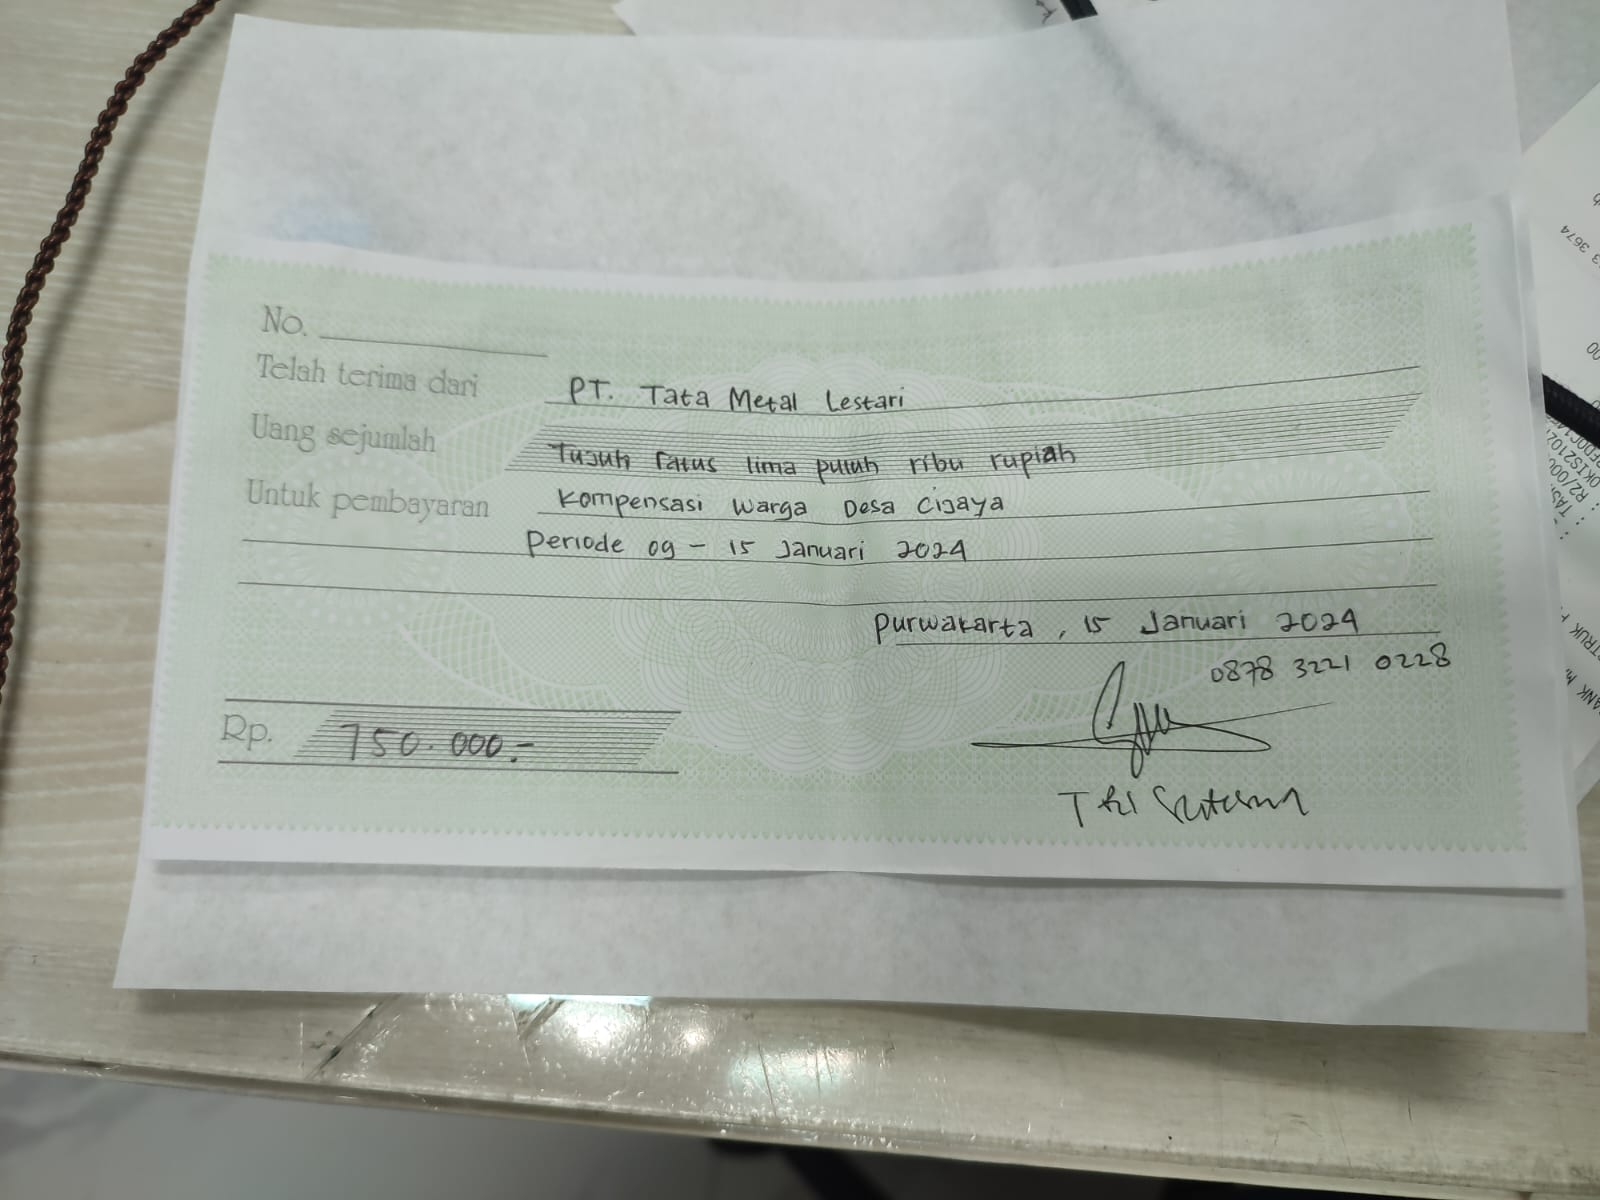 No.
Telah terima dari PT. Tata Metal Lestari
Uang sejumlah Tujuh ratus lima puluh ribu rupiah
Untuk pembayaran Kompensasi Warga Desa Cijaya
Periode 09 - 15 Januari 2024
Purwakarta, 15 Januari 2024
0878 3221 0228
Rp. 750.000,-
3674